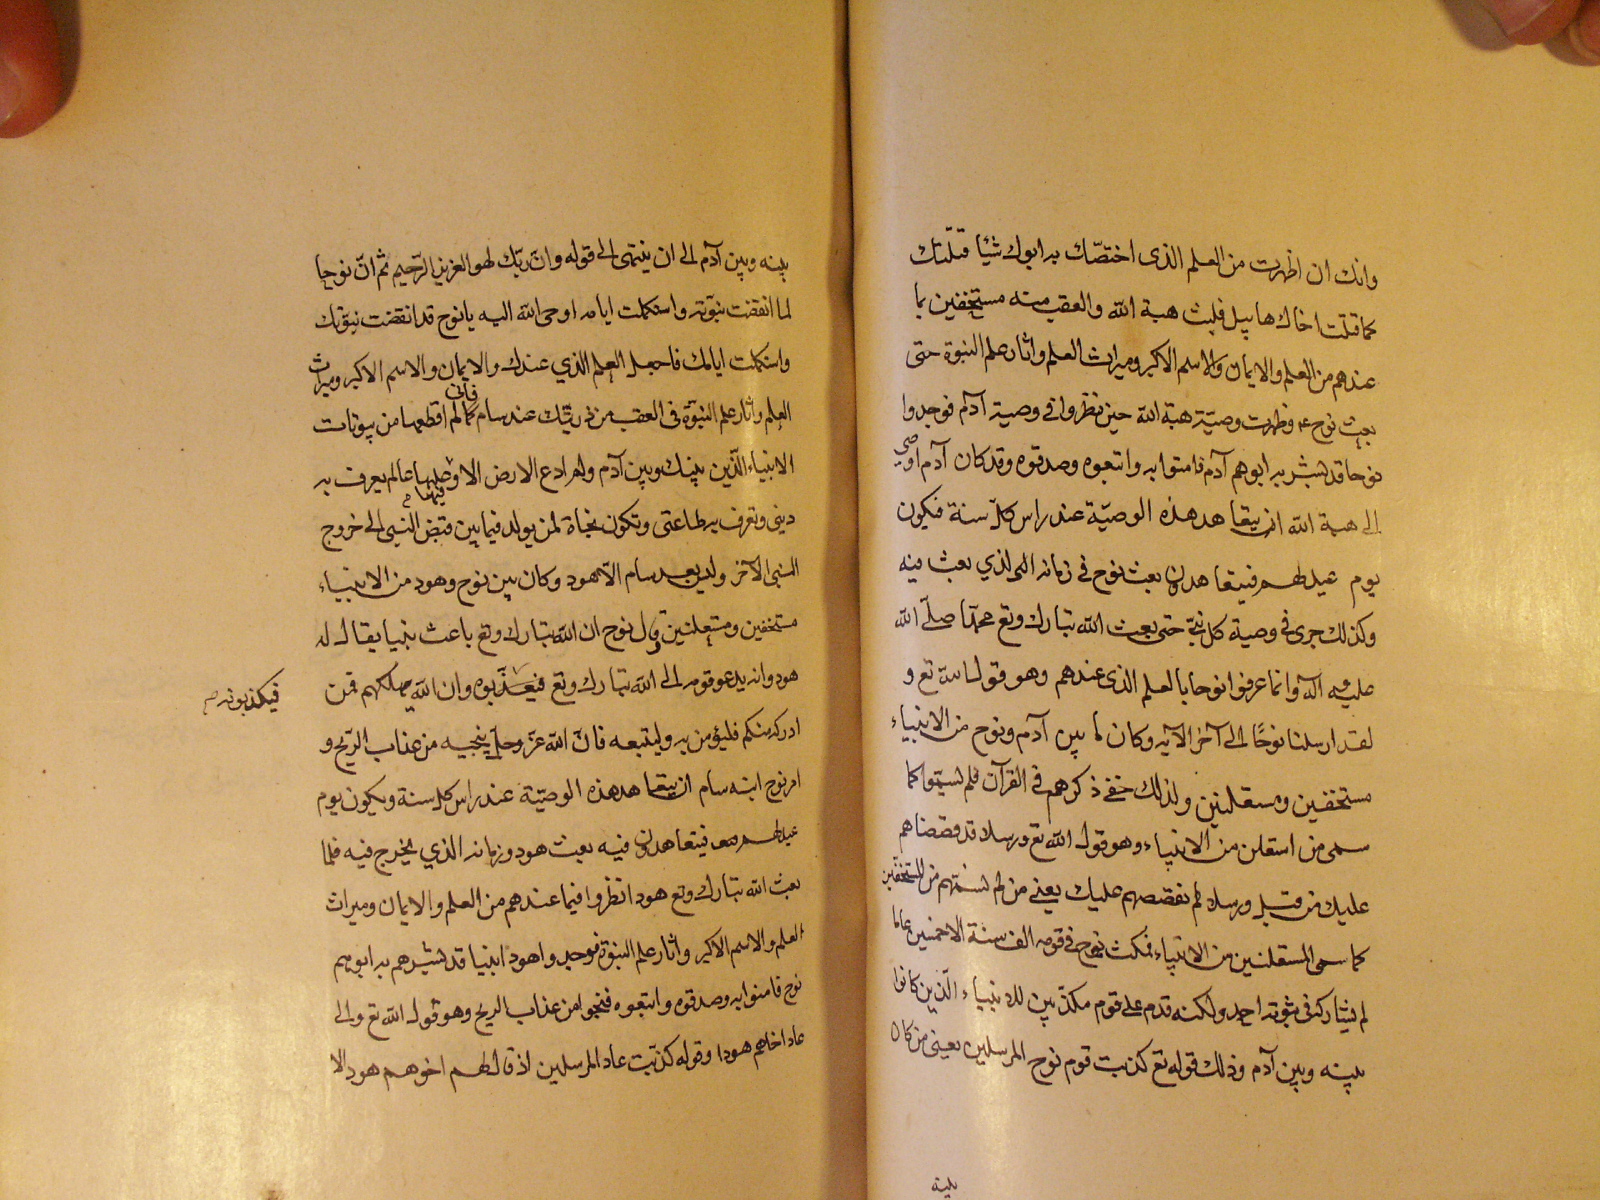 وانك ان اظهرت من العلم الذى اختصّك به ابوك شيئا قتلتك
كما قتلت اخاك هابيل فلبث هبة الله والعقب منه مستخفين بما
عندهم من العلم والايمان والاسم الاكبر وميراث العلم واثار علم النبوة حتى
بعث نوح ع وظهرت وصيّة هبة الله حين نظروا فى وصية آدم فوجدوا
نوحا قد بشر به ابوهم آدم فامنوا به واتبعوه وصدقوه وقد كان آدم اوصى
الى هبة الله ان يتعاهد هذه الوصيّة عند راس كل سنة فيكون
يوم عيد لهم فيتعاهدون بعث نوح فى زمانه الذي بعث فيه
وكذلك جرى فى وصية كل نبي حتى بعث الله تبارك وتع محمدا صلى الله
عليه وآله وانما عرفوا نوحا بالعلم الذى عندهم وهو قول الله تع و
لقد ارسلنا نوحًا الى آخر الآيه وكان ما بين آدم ونوح من الانبياء
مستخفين ومستعلنين ولذلك خفى ذكرهم فى القرآن فلم يسمّوا كما
سمى من استعلن من الانبياء وهو قول الله تع ورسلا قد قصصناهم
عليك من قبل ورسلا لم نقصصهم عليك يعنى من لم نسمّهم من المستخفين
كما سمى المستعلنين من الانبياء فمكث نوح فى قومه الف سنة الا خمسين عاما
لم يشاركه فى نبوّته احد ولكنه قدم على قوم مكذّبين للانبياء الّذين كانوا
بينه وبين آدم وذلك قوله تع كذبت قوم نوح المرسلين يعنى من كان
بينه
بينه وبين آدم الى ان ينتهى الى قوله وانّ ربّك لهو العزيز الرّحيم ثم انّ نوحا
لما انقضت نبوّته واستكملت ايامه اوحى الله اليه يا نوح قد انقضت نبوّتك
واستكملت ايامك فاجعل العلم الذي عندك والايمان والاسم الاكبر وميراث
العلم واثار علم النبوّة فى العقب من ذريّتك عند سام فانّى كما لم اقطعها من بيوتات
الانبياء الّذين بينك وبين آدم ولم ادع الارض الا وفيها عالم يعرف به
دينى وتعرف به طاعتى وتكون نجاة لمن يولد فيما بين قبض النبى الى خروج
النبى الآخر وليس بعد سام الّا هود وكان بين نوح وهود من الانبياء
مستخفين ومستعلنين وقال نوح ان الله تبارك وتع باعث نبيا يقال له
هود وانه يدعو قومه الى الله تبارك وتع فيعذّبوه وان الله مهلكهم فمن
فيكذبونه صح
ادركه منكم فليؤمن به وليتبعه فانّ الله عزّ وجلّ ينجيه من عذاب الرّيح و
امر نوح ابنه سام ان يتعاهد هذه الوصيّة عند راس كل سنة ويكون يوم
عيد لهم فيتعاهدون فيه بعث هود وزمانه الذي يخرج فيه فلما
بعث الله تبارك وتع هود انظروا فيما عندهم من العلم والايمان وميراث
العلم والاسم الاكبر واثار علم النبوّة فوجدوا هودا نبيا قد بشّرهم به ابوهم
نوح فامنوا به وصدقوه واتبعوه فنجوا من عذاب الريح وهو قول الله تع والى
عاد اخاهم هودا وقوله كذّبت عاد المرسلين اذ قال لهم اخوهم هود الا